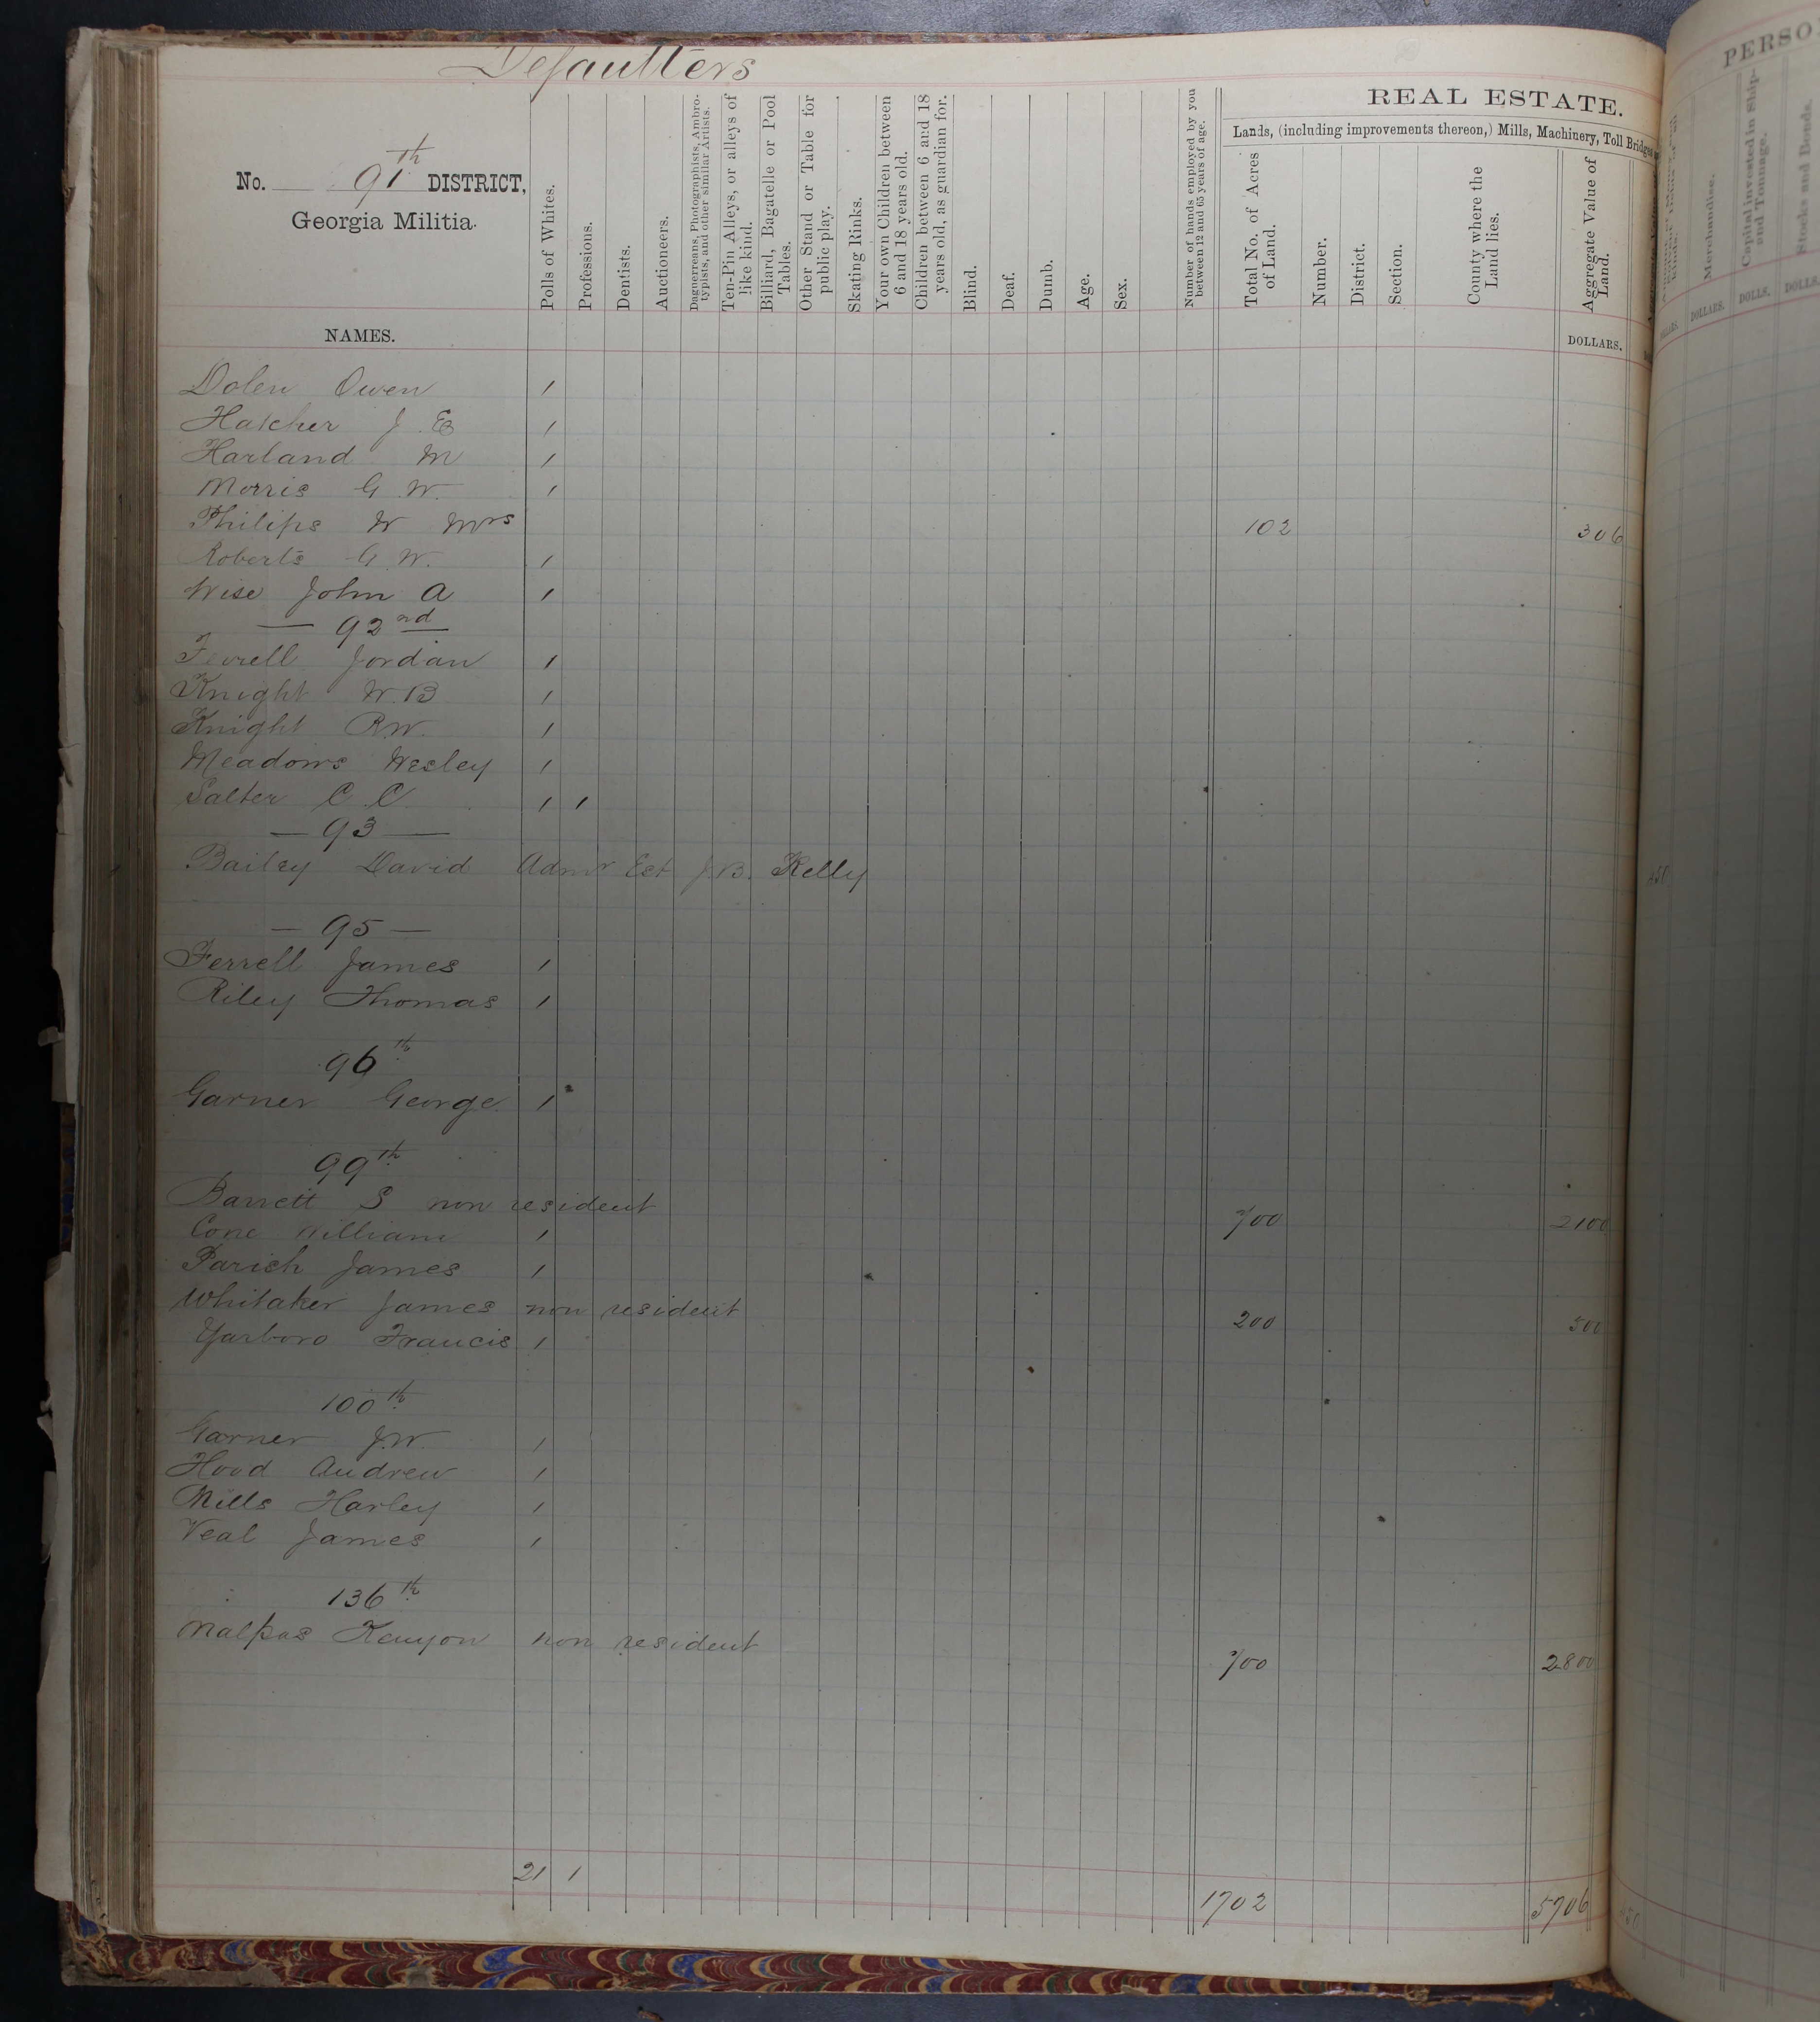 Defaulters
No. 91th DISTRICT,
Georgia Militia.
NAMES.
Polls of Whites.
Professions.
Dentists.
Auctioneers.
Daguerreans, Photographists, Ambro-
typists, and other similar Artists.
Ten-Pin Alleys, or alleys of
like kind.
Billiard, Bagatelle or Pool
Tables.
Other Stand or Table for
public play.
Skating Rinks.
Your own Children between
6 and 18 years old.
Children between 6 and 18
years old, as guardian for.
Blind.
Deaf.
Dumb.
Age.
Sex.
Number of hands employed by you
between 12 and 65 years of age.
REAL ESTATE.
Lands, (including improvements thereon,) Mills, Machinery, Toll Bridges
Total No. of Acres
of Land.
Number.
District.
Section.
County where the
Land lies.
Aggregate Value of
Land.
DOLLARS.
PERSO
Merchandise.
Capital invested in Ship-
and Tonnage.
Stocks and Bonds.
DOLLARS. DOLLS. DOLLS.
Dolen Owen 1
Hatcher J. E 1
Harland M 1
Morris G. W. 1
Philips W Mrs 102 306
Roberts G. W. 1
Wise John A 1
— 92nd —
Ferrell Jordan 1
Knight W. B 1
Knight R W. 1
Meadows Wesley 1
Salter C. C. 1 1
— 93 —
Bailey David Admr Est J. B. Kelly 450
— 95 —
Ferrell James 1
Riley Thomas 1
96th
Garner George 1
99th
Barrett S non resident 700 2100
Cone William 1
Parish James 1
Whitaker James non resident 200 500
Yarboro Francis 1
100th
Garner J. W. 1
Hood Andrew 1
Mills Harley 1
Veal James 1
136th
Malpas Kenyon non resident 700 2800
21 1 1702 5706 450